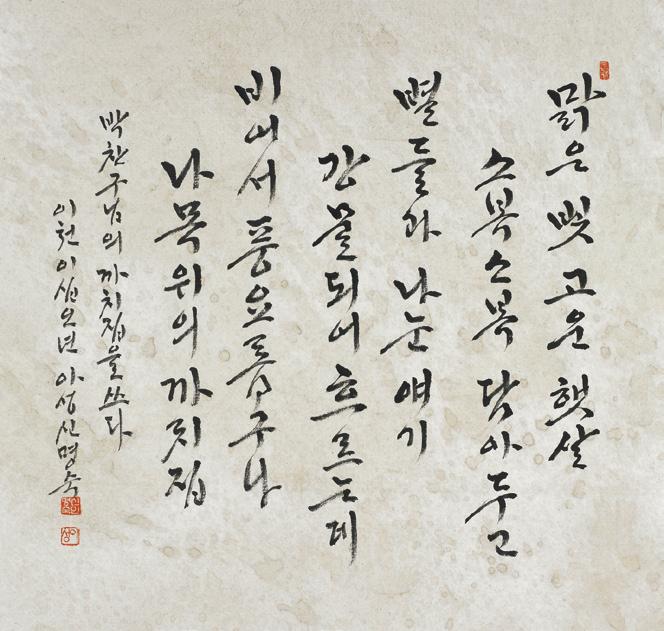 맑은 빛 고운 햇살
소복소복 담아두고
별들과 나눈 얘기
강물되어 흐르는데
비어서 풍요롭구나
나목위의 까치집
박찬구님의 까치집을 쓰다
이천이십오년 아성 신명숙